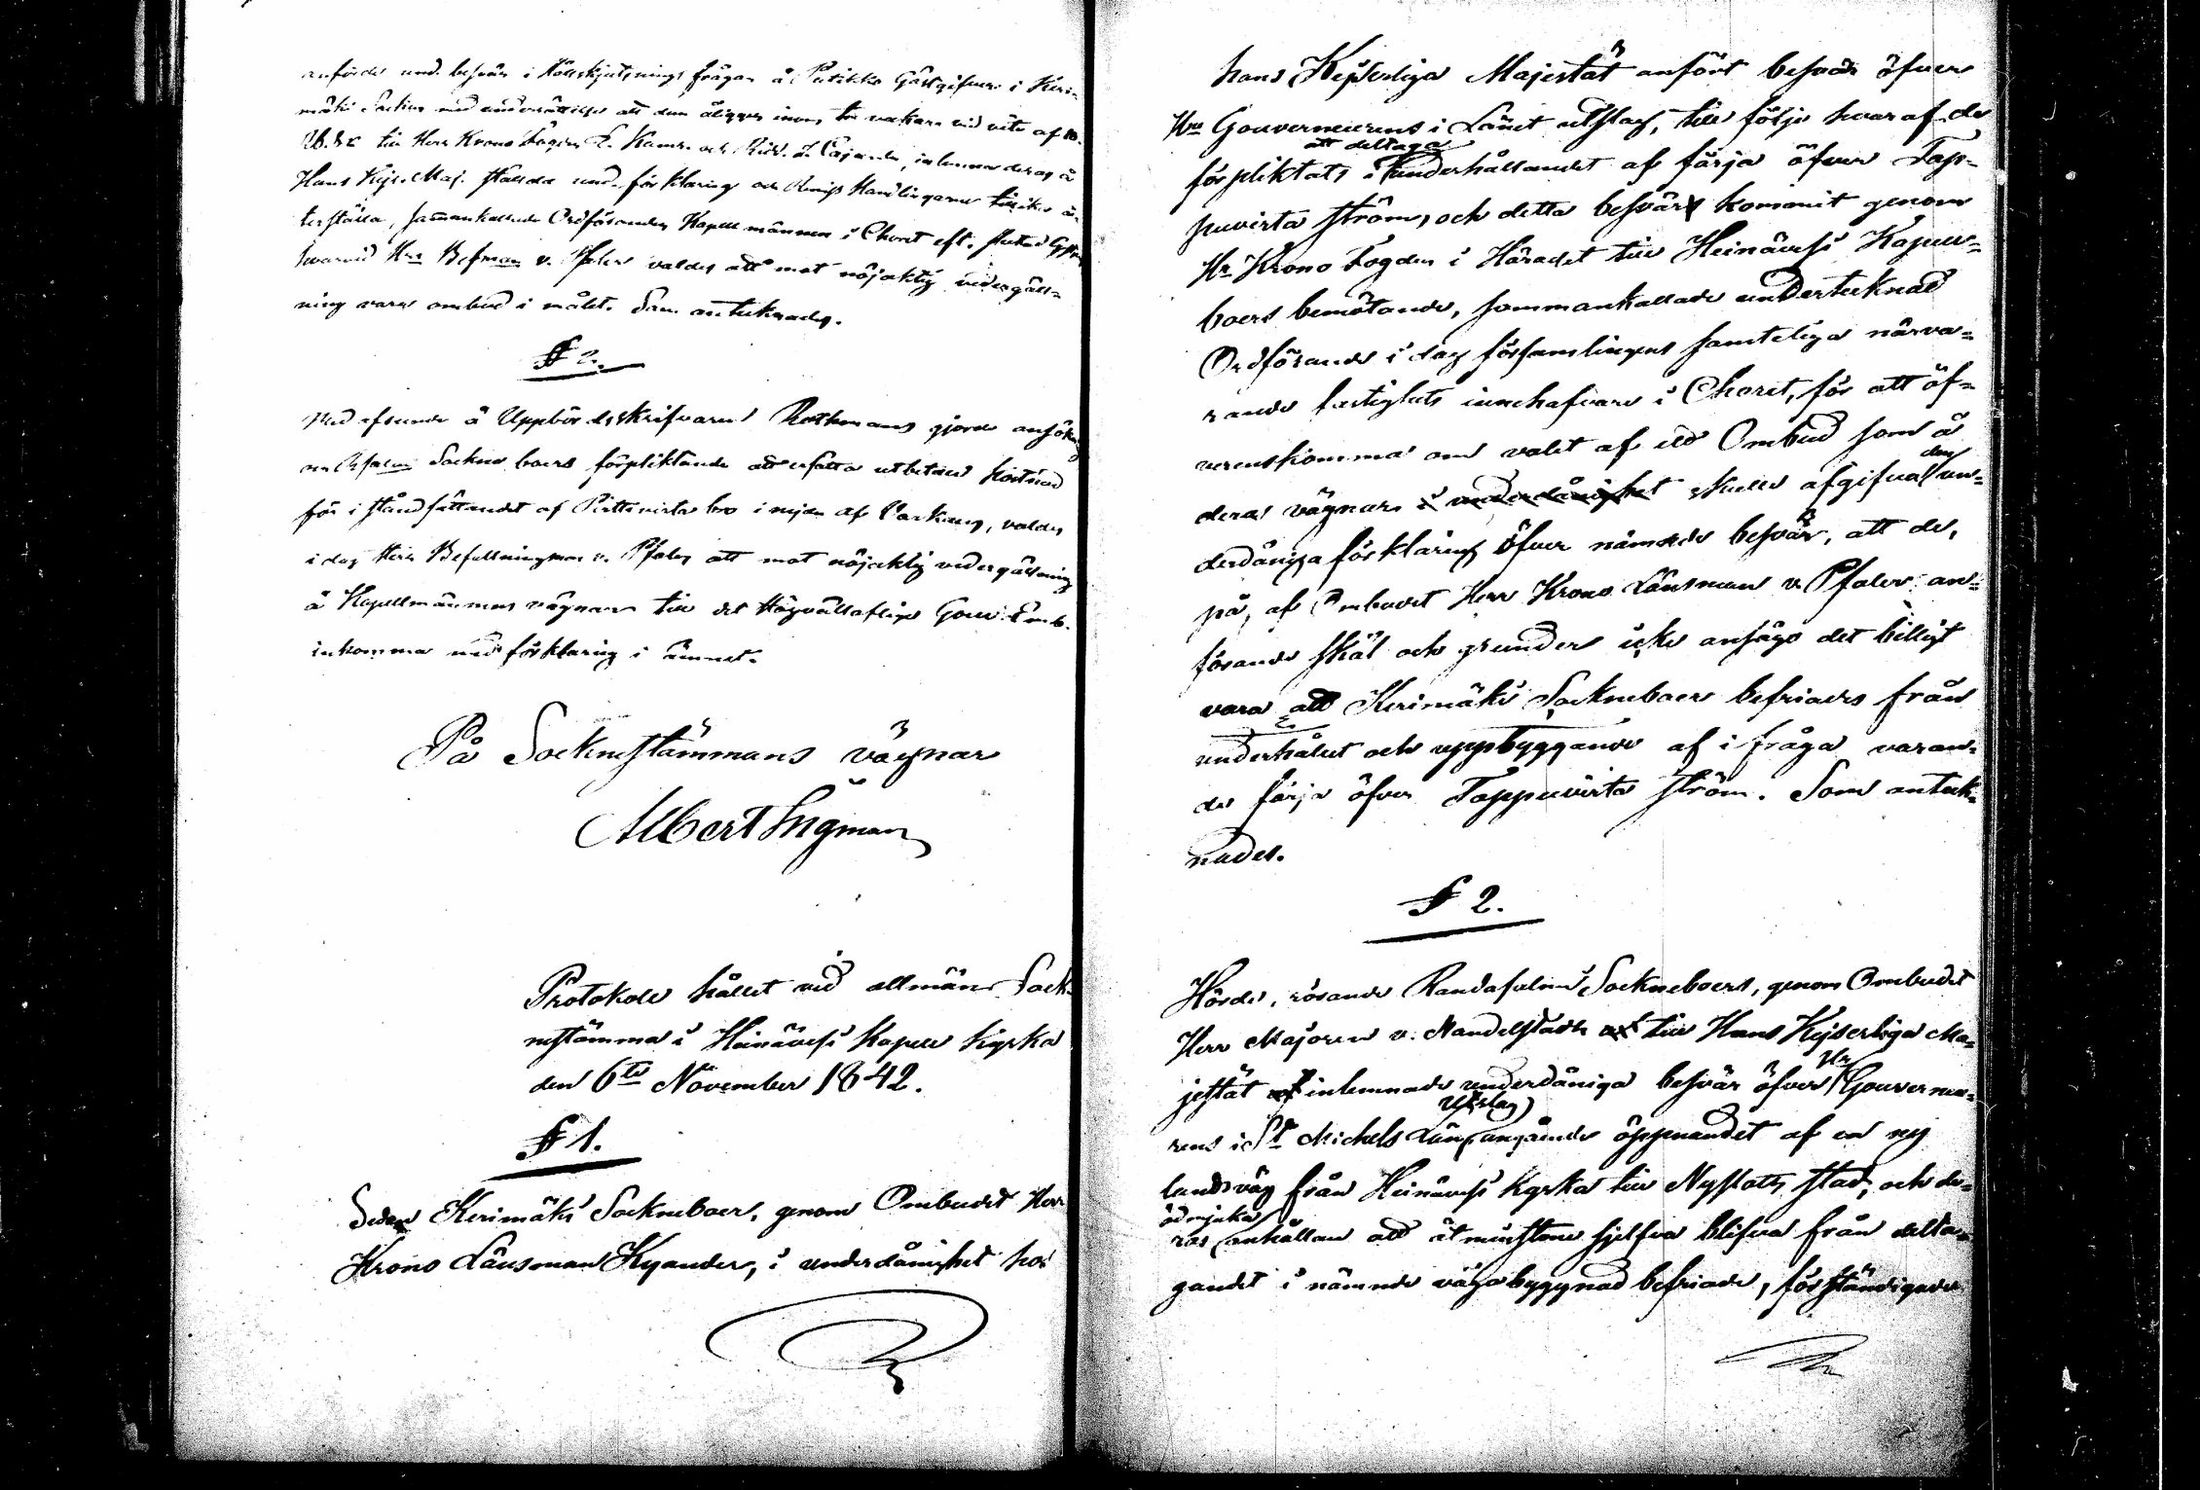 anförda und. besvär i Hållskjutsnings frågan å Putikko Gästgifveri i Keri-
mäki Socken med underrättelse att dem åligger inom tre veckar vid vite af 10.
Rb. Sr till Herr Krono Fogden L. Kamr. och Ridd. J. Cajander, inlemna deras å
Hans Kejs. Maj. ställda und. förklaring och Remiss Handlingarne tillika å-
terställa, sammankallade Ordföranden Kapell männen i Choret eft. slutad Gstj
hvarvid Hrr Befman v. Pfaler valdes att mot nöjaktig vedergäll-
ning vara ombud i målet. Som antecknades.
§ 2.
Med afseende å Uppbördsskrifvaren Rothmans gjorde ansökn
om Socknе boers förpliktande att ersätta utbetald kostnad
för i ståndsättandet af Pirttivirta bro i nejden af Warkaus, valdes
i dag Herr Befallningsman v. Pfaler att mot nöjaktig vedergällning
å Kapellmännens vägnar till det Högvällofliga Gouv: Emb.
inkomma med förklaring i ämnet.
På Sockne stämmans vägnar
Albert Ingman
Protokoll hållet vid allmän Sock-
nestämma i Heinävesi Kapell kyrka
den 6te November 1842.
§ 1.
Sedan Kerimäki Socknеboer, genom Ombudet Herr
Krono Länsman Kyander, i underdånighet hos
hans Kejserliga Majestät anfört besvär öfver
Hrr Gouverneurens i Länet utslag, till följe hvaraf de
förpliktats att deltaga i underhållandet af färja öfver Tap-
puvirta ström, och detta besvär kommit genom
Hr Krono Fogden i Häradet till Heinävesi Kapell-
boers bemötande, sammankallade undertecknad
Ordförande i dag församlingens samteliga närva-
rande fastighets innehafvare i Choret, för att öf-
verenskomma om valet af ett Ombud som å
deras vägnar i underdånighet skulle afgifva den un-
derdåniga förklaring öfver nämnde besvär, att de,
på, af Ombudet Herr Krono Länsman v. Pfaler an-
förande skäl och grunder icke ansågo det billigt
vara att Kerimäki Socknеboer befriades från
underhållet och uppbyggande af i fråga varan-
de färja öfver Tappuvirta ström. Som anteck-
nades.
§ 2.
Hördes, rörande Randasalmi Socknеboers, genom Ombudet
Herr Majoren v. Nandelstadh till Hans Kejserliga Ma-
jestät inlemnade underdåniga besvär öfver Hr Gouverneu-
rens i St Michels Län utslag angående öppnandet af en ny
landsväg från Heinävesi kyrka till Nyslotts stad, och de-
ras ödmjuka anhållan att åtminstone sjelfva blifva från delta-
gandet i nämnde vägabyggnad befriade, förständigades